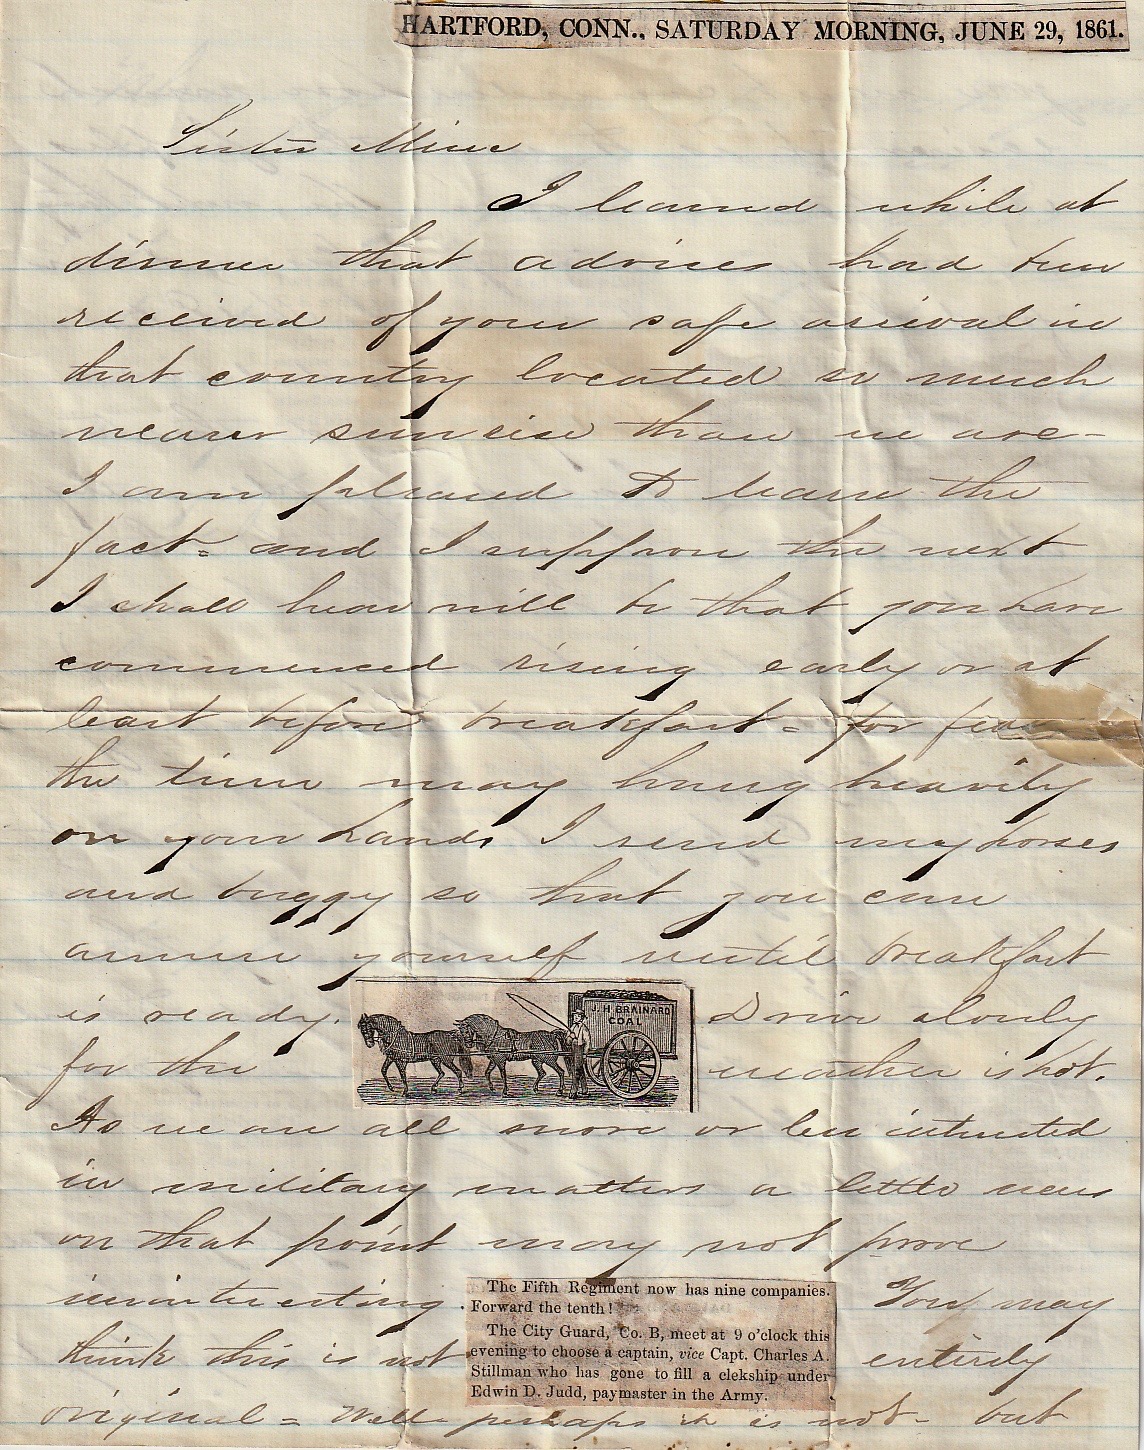 HARTFORD, CONN., SATURDAY MORNING, JUNE 29, 1861.
Sister Mine
I learned while at
dinner that advices had been
received of your safe arrival in
that country located so much
nearer sunrise than we are -
I am pleased to learn the
fact - and I suppose the next
I shall hear will be that you have
commenced rising early or at
least before breakfast - for fear
the time may hang heavily
on your hands I send my horses
and buggy so that you can
amuse yourself until breakfast
is ready. Drive slowly
J. H. BRAINARD
COAL
for the weather is hot.
As we are all more or less interested
in military matters a little news
on that point may not prove
uninteresting You may
The Fifth Regiment now has nine companies.
Forward the tenth!
The City Guard, Co. B, meet at 9 o'clock this
evening to choose a captain, vice Capt. Charles A.
Stillman who has gone to fill a clekship under
Edwin D. Judd, paymaster in the Army.
think this is not entirely
original - Well perhaps it is not - but